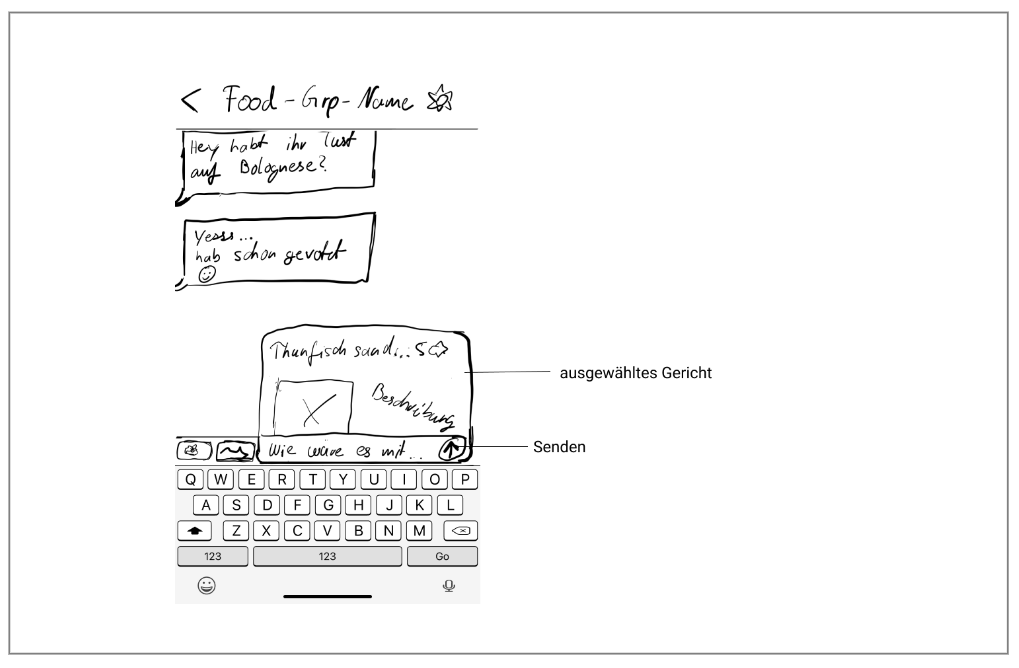 < Food-Grp-Name
Hey habt ihr lust
auf Bolognese?
Yesss...
hab schon gevotet
Thunfisch sand...
ausgewähltes Gericht
Beschreibung
Wie wäre es mit...
Senden
Q W E R T Y U I O P
A S D F G H J K L
Z X C V B N M
123 123 Go